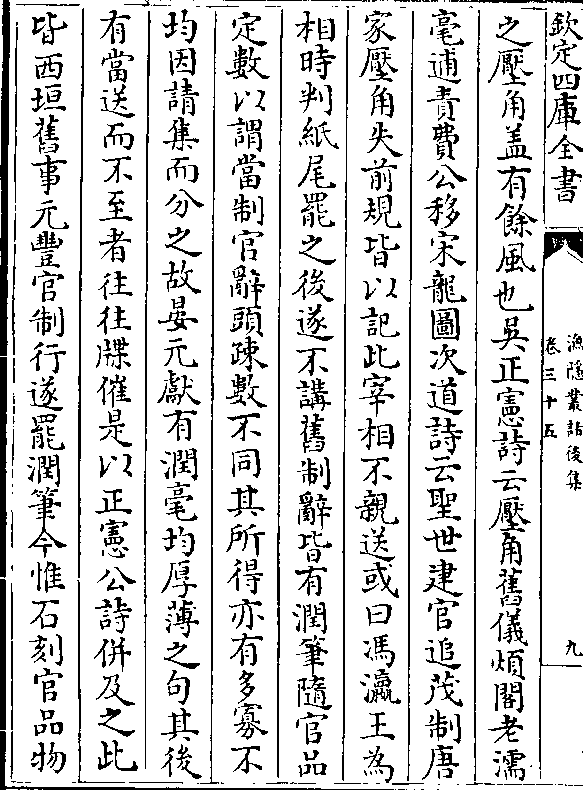 欽定四庫全書
漁隱叢話後集
卷三十五
九
之壓角盖有餘風也吳正憲詩云壓角舊儀煩閣老濡
毫逋責費公移宋龍圖次道詩云聖世建官追茂制唐
家壓角失前規皆以記此宰相不親送或曰馮瀛王為
相時判紙尾罷之後遂不講舊制辭皆有潤筆隨官品
定數以謂當制官辭頭疎數不同其所得亦有多寡不
均因請集而分之故晏元獻有潤毫均厚薄之句其後
有當送而不至者往往牒催是以正憲公詩併及之此
皆西垣舊事元豐官制行遂罷潤筆今惟石刻官品物